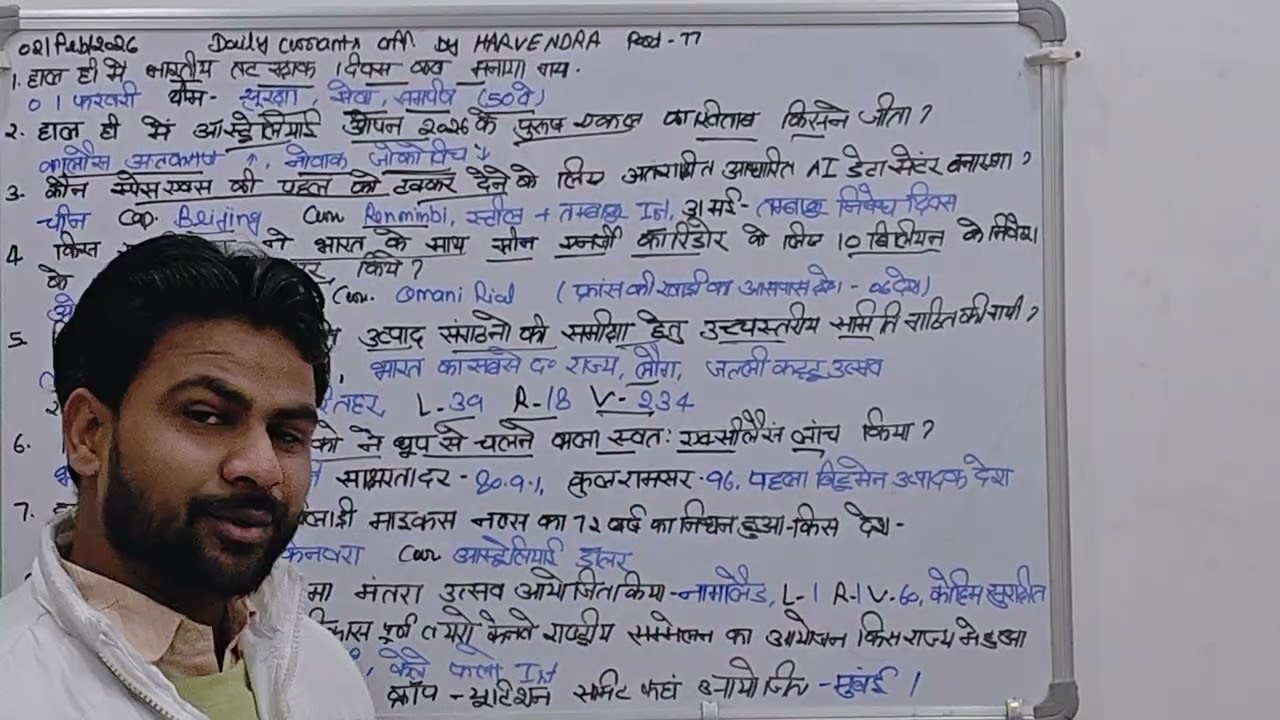 02/Feb/2026 Daily currents aff. by HARVENDRA Pood-77
1. हाल ही में भारतीय तट रक्षक दिवस कब मनाया गया.
01 फरवरी थीम- सुरक्षा, सेवा, समर्पण (50वें)
2. हाल ही में ऑस्ट्रेलियाई ओपन 2026 के पुरूष एकल का खिताब किसने जीता?
कार्लोस अल्काराज ↑, नोवाक जोकोविच ↓
3. कौन स्पेसएक्स की पहल को टक्कर देने के लिए अंतरिक्ष आधारित AI डेटा सेंटर बनाएगा?
चीन Cap. Beijing Curr Renminbi, स्टील + तम्बाकू Ist, 31 मई- तम्बाकू निषेध दिवस
4 किस ने भारत के साथ ग्रीन एनर्जी कॉरिडोर के लिए 10 बिलियन के निवेश
के किये?
Curr. Omani Rial (फ्रांस की खाड़ी का आसपास देश - 06 देश)
5. उत्पाद संगठनो की समीक्षा हेतु उच्चस्तरीय समिति गठित की गयी?
, भारत का सबसे द० राज्य, जल्ली कट्टू उत्सव
L-39 R-18 V-234
6. को ने धूप से चलने वाला स्वतः लांच किया?
साक्षरता दर - 80.9%, कुल रामसर - 96, पहला बिटुमेन उत्पादक देश
7. माइकस नन्स का 72 वर्ष का निधन हुआ-किस देश-
केनवरा Curr ऑस्ट्रेलियाई डॉलर
मा मंतरा उत्सव आयोजित किया-नागालैंड, L-1 R-1 V-60, कोहिमा
पूर्व राष्ट्रीय सम्मेलन का आयोजन किस राज्य मे हुआ
Ist
क्रॉप - न्यूट्रिशन समिट कहां आयोजित - मुंबई।